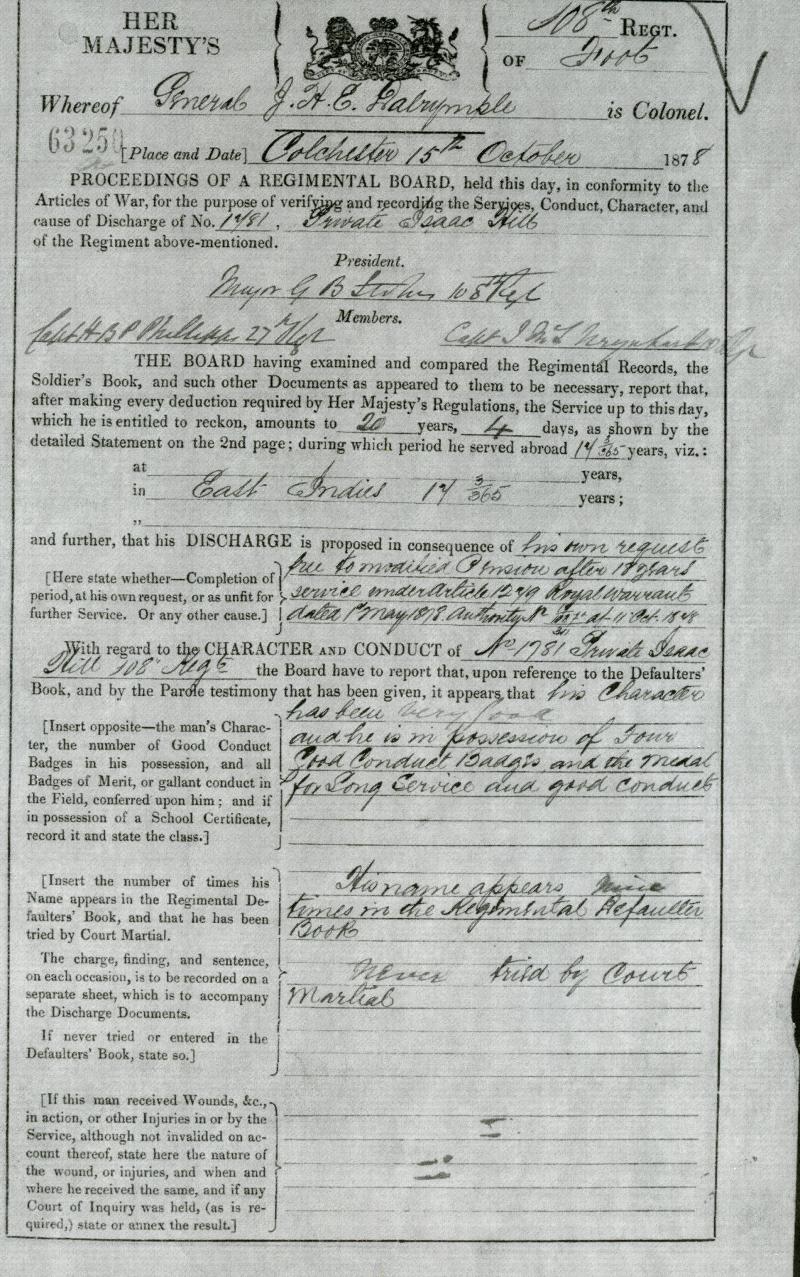 HER MAJESTY'S
108th REGT.
OF Foot
Whereof General J. H. E. Dalrymple is Colonel.
63250
[Place and Date] Colchester 15th October 1878
PROCEEDINGS OF A REGIMENTAL BOARD, held this day, in conformity to the
Articles of War, for the purpose of verifying and recording the Services, Conduct, Character, and
cause of Discharge of No. 1781, Private Isaac Hill
of the Regiment above-mentioned.
President.
Major G B 108 Regt
Members.
Capt H B P Phillipps 27th Regt
Capt J
THE BOARD having examined and compared the Regimental Records, the
Soldier's Book, and such other Documents as appeared to them to be necessary, report that,
after making every deduction required by Her Majesty's Regulations, the Service up to this day,
which he is entitled to reckon, amounts to 20 years, 4 days, as shown by the
detailed Statement on the 2nd page; during which period he served abroad 14 3/365 years, viz.:
at years,
in East Indies 14 3/365 years;
„
and further, that his DISCHARGE is proposed in consequence of his own request
[Here state whether—Completion of
period, at his own request, or as unfit for
further Service. Or any other cause.]
free to modified Pension after 18 years
service under Article 1249 Royal Warrant
dated 1st May 1878. Authority No at 11 Oct. 1878
With regard to the CHARACTER AND CONDUCT of No 1781 Private Isaac
Hill 108th Regt the Board have to report that, upon reference to the Defaulters'
Book, and by the Parole testimony that has been given, it appears that his Character
has been very good
and he is in possession of Four
Good Conduct Badges and the Medal
for Long Service and good conduct
[Insert opposite—the man's Charac-
ter, the number of Good Conduct
Badges in his possession, and all
Badges of Merit, or gallant conduct in
the Field, conferred upon him; and if
in possession of a School Certificate,
record it and state the class.]
[Insert the number of times his
Name appears in the Regimental De-
faulters' Book, and that he has been
tried by Court Martial.
The charge, finding, and sentence,
on each occasion, is to be recorded on a
separate sheet, which is to accompany
the Discharge Documents.
If never tried or entered in the
Defaulters' Book, state so.]
His name appears nine
times in the Regimental Defaulter
Book
Never tried by Court
Martial
[If this man received Wounds, &c.,
in action, or other Injuries in or by the
Service, although not invalided on ac-
count thereof, state here the nature of
the wound, or injuries, and when and
where he received the same, and if any
Court of Inquiry was held, (as is re-
quired,) state or annex the result.]